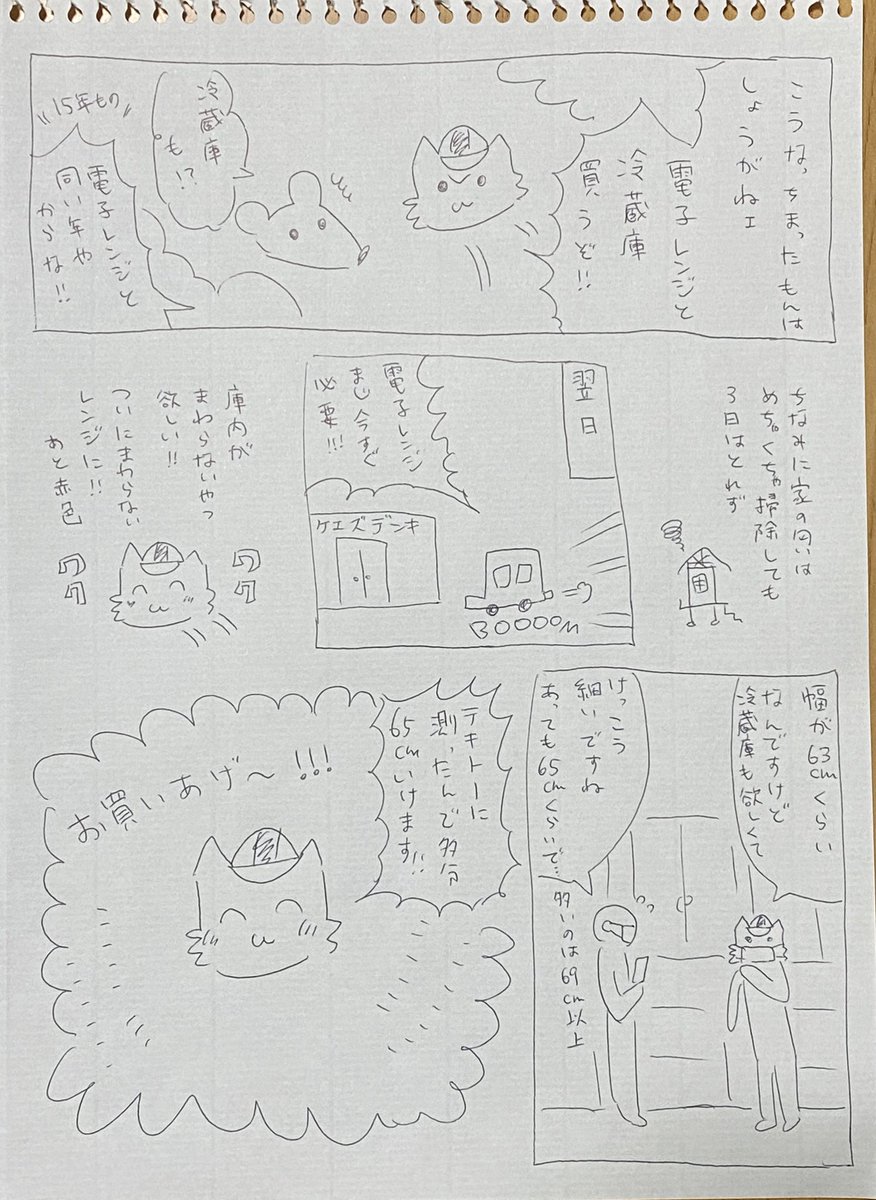 こうなっちまったもんは
しょうがねェ
電子レンジと
冷蔵庫
買うぞ!!
冷蔵庫
も!?
15年もの
電子レンジと
同い年や
からな!!
ちなみに家の匂いは
めちゃくちゃ掃除しても
3日はとれず
翌日
電子レンジ
まじ今すぐ
必要!!!
ケエズデンキ
BOOOON
庫内が
まわらないやつ
欲しい!!
ついにまわらない
レンジに!!
あと赤色
ワク
ワク
幅が63cmくらい
なんですけど
冷蔵庫も欲しくて
けっこう
細いですね
あっても65cmくらいで…
多いのは69cm以上
テキトーに
測ったんで多分
65cmいけます!!
お買いあげ〜!!!